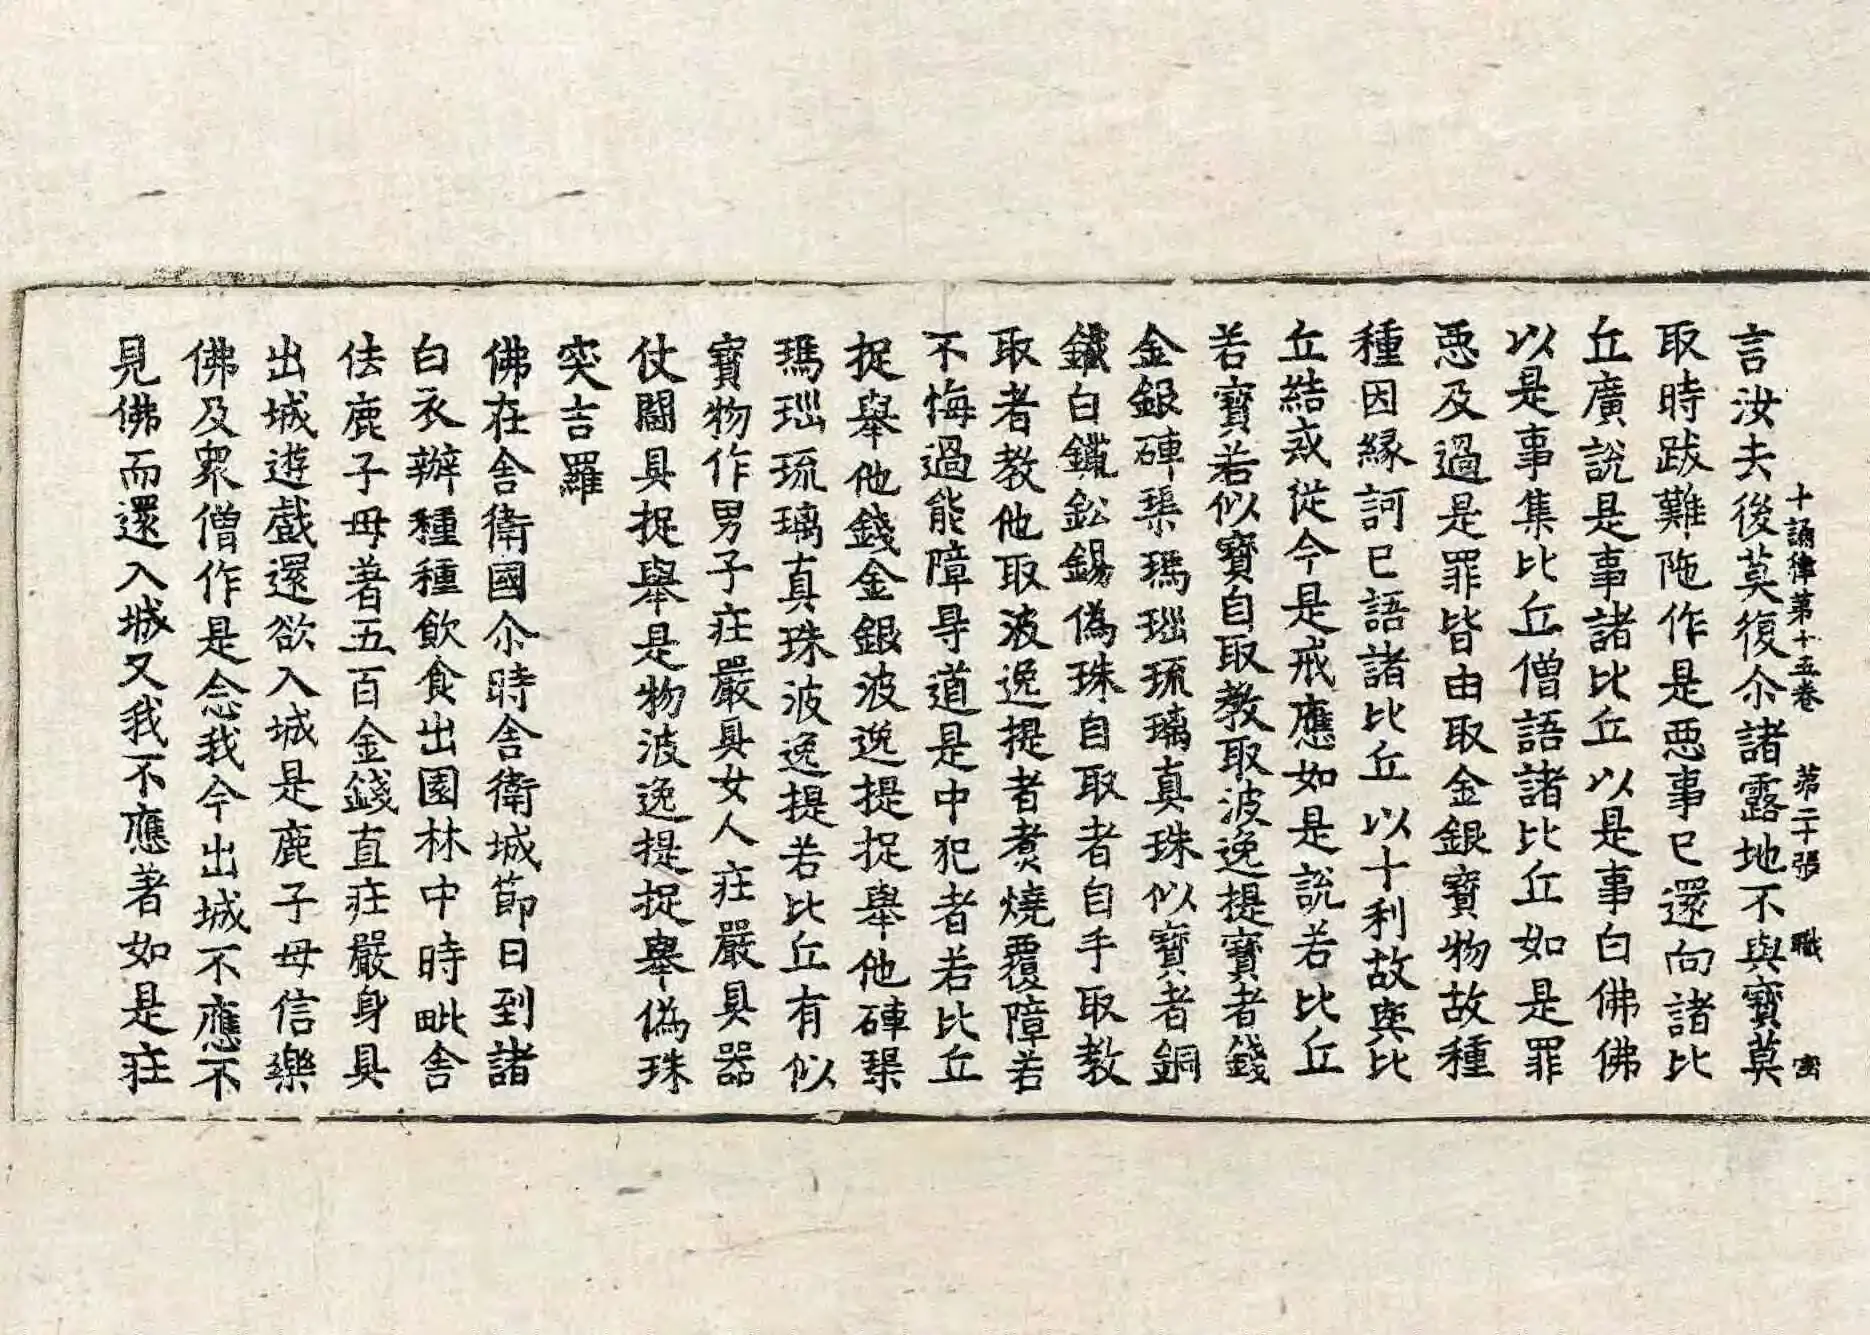 十誦律第十五卷 第二十張 職 宻
言汝去後莫復尒諸露地不與寶莫
取時跋難陁作是惡事已還向諸比
丘廣說是事諸比丘以是事白佛佛
以是事集比丘僧語諸比丘如是罪
惡及過是罪皆由取金銀寶物故種
種因緣訶已語諸比丘以十利故與比
丘結戒從今是戒應如是說若比丘
若寶若似寶自取教取波逸提寶者錢
金銀硨磲瑪瑙琉璃真珠似寶者銅
鐵白鑞鈆錫偽珠自取者自手取教
取者教他取波逸提者煑燒覆障若
不悔過能障㝵道是中犯者若比丘
捉舉他錢金銀波逸提捉舉他硨磲
瑪瑙琉璃真珠波逸提若比丘有似
寶物作男子疘嚴具女人疘嚴具器
仗鬪具捉舉是物波逸提捉舉偽珠
突吉羅
佛在舍衛國尒時舍衛城節日到諸
白衣辦種種飲食出園林中時毗舍
佉鹿子母著五百金錢直疘嚴身具
出城遊戲還欲入城是鹿子母信樂
佛及眾僧作是念我今出城不應不
見佛而還入城又我不應著如是疘